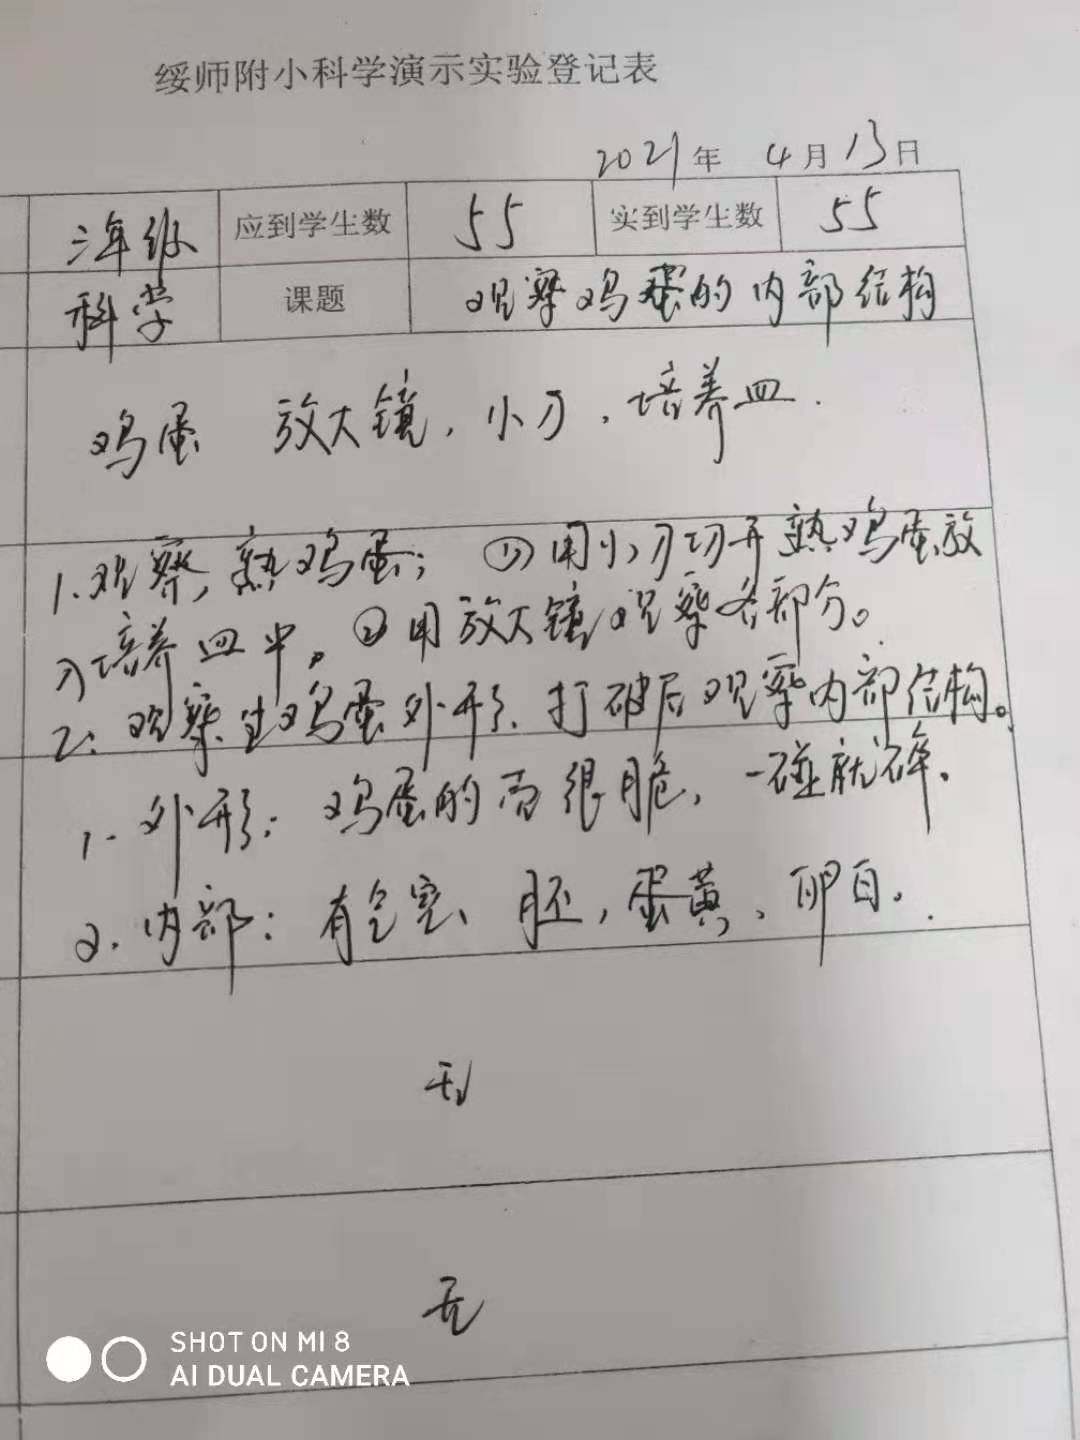 绥师附小科学演示实验登记表
2021年 4月13日
三年级 应到学生数 55 实到学生数 55
科学 课题 观察鸡蛋的内部结构
鸡蛋 放大镜，小刀，培养皿．
1.观察，熟鸡蛋； ①用小刀切开熟鸡蛋放
入培养皿中。②用放大镜观察各部分。
2: 观察生鸡蛋外形．打破后观察内部结构。
1. 外形：鸡蛋的壳很脆，一碰就碎．
2. 内部：有气室、胚，蛋黄、卵白．
无
无
SHOT ON MI 8
AI DUAL CAMERA